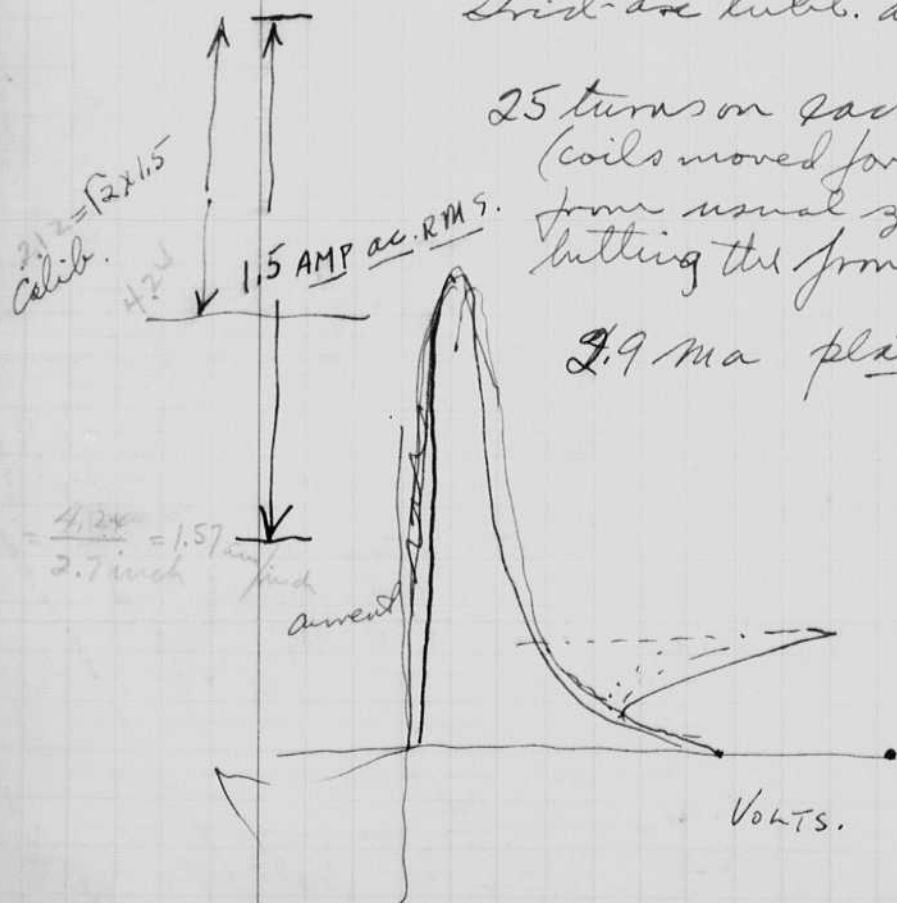 Grid-arc tube. a
25 turns on eac
(coils moved for
from usual s
butting the fron
2.12 = √2 x 1.5
Calib.
4.24
1.5 AMP ac. RMS.
2.9 ma pla
= 4.24 / 2.7 inch = 1.57 am/inch
current
VOLTS.